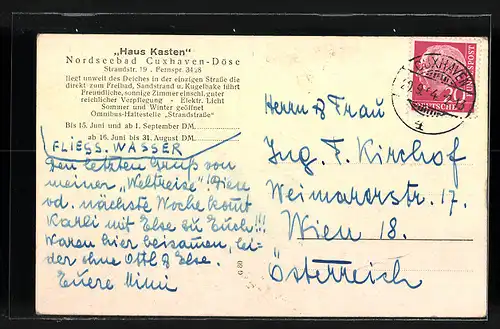 „Haus Kasten"
Nordseebad Cuxhaven-Döse
Strandstr. 19 . Fernspr. 3428
liegt unweit des Deiches in der einzigen Straße die
direkt zum Freibad, Sandstrand u. Kugelbake führt
Freundliche, sonnige Zimmer einschl. guter
reichlicher Verpflegung - Elektr. Licht
Sommer und Winter geöffnet
Omnibus-Haltestelle „Strandstraße"
Bis 15. Juni und ab 1. September DM
ab 16. Juni bis 31. August DM
FLIESS. WASSER
Den letzten Gruß von
meiner „Weltreise"! Diese
od. nächste Woche komt
Karli mit Else zu Euch!!!
Waren hier beisamen, lei-
der ohne Ottl & Else.
Euere Mimi
G 60
CUXHAVEN
4
20
DEUTSCHE
Herrn & Frau
Ing. F. Kirchhof
Weimarerstr. 17.
Wien 18.
Österreich